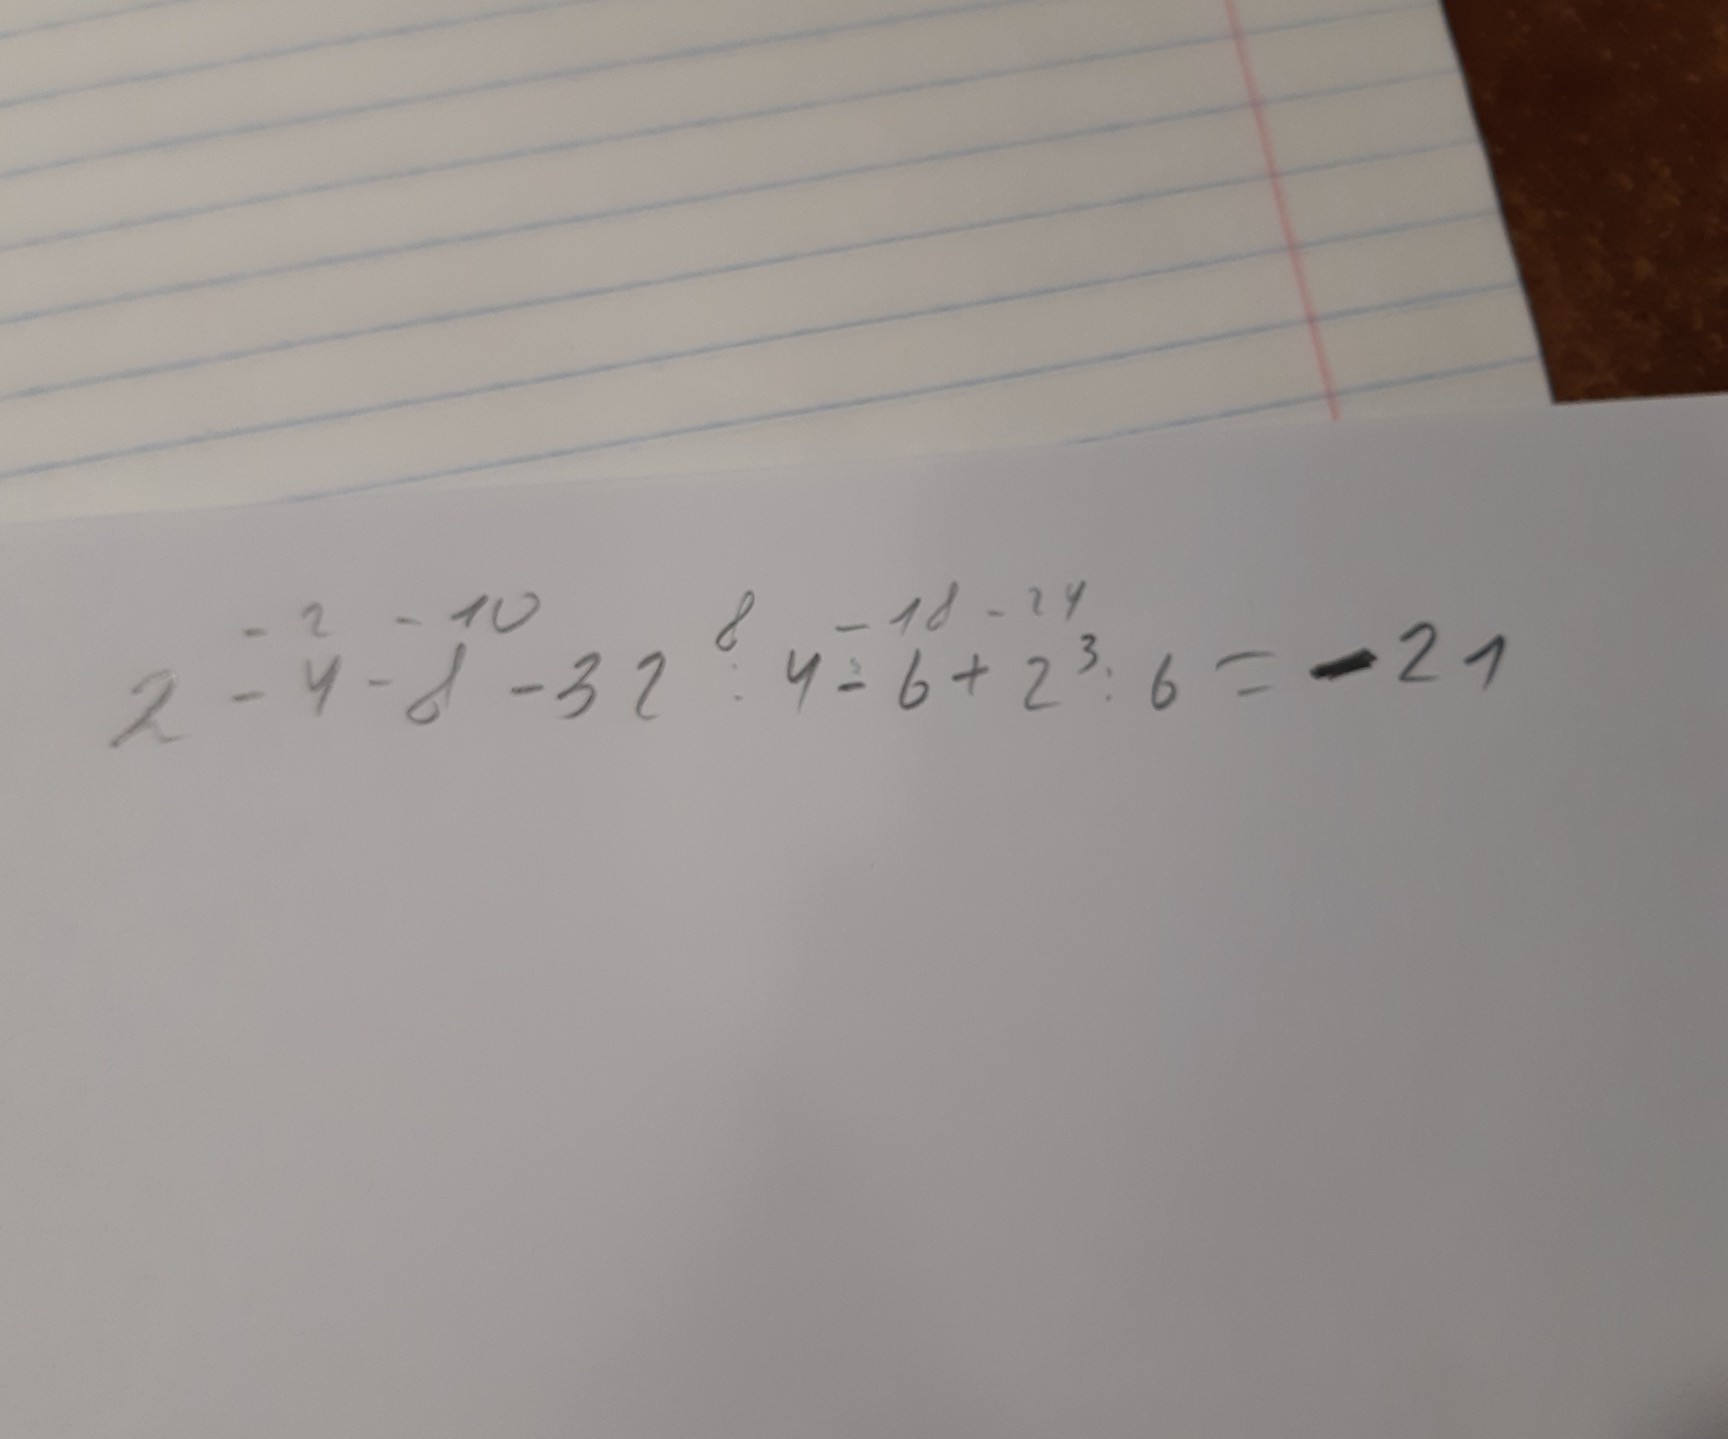 - 2 - 10 8 - 18 - 24
2 - 4 - 8 - 32 : 4 - 6 + 2³ : 6 = - 21